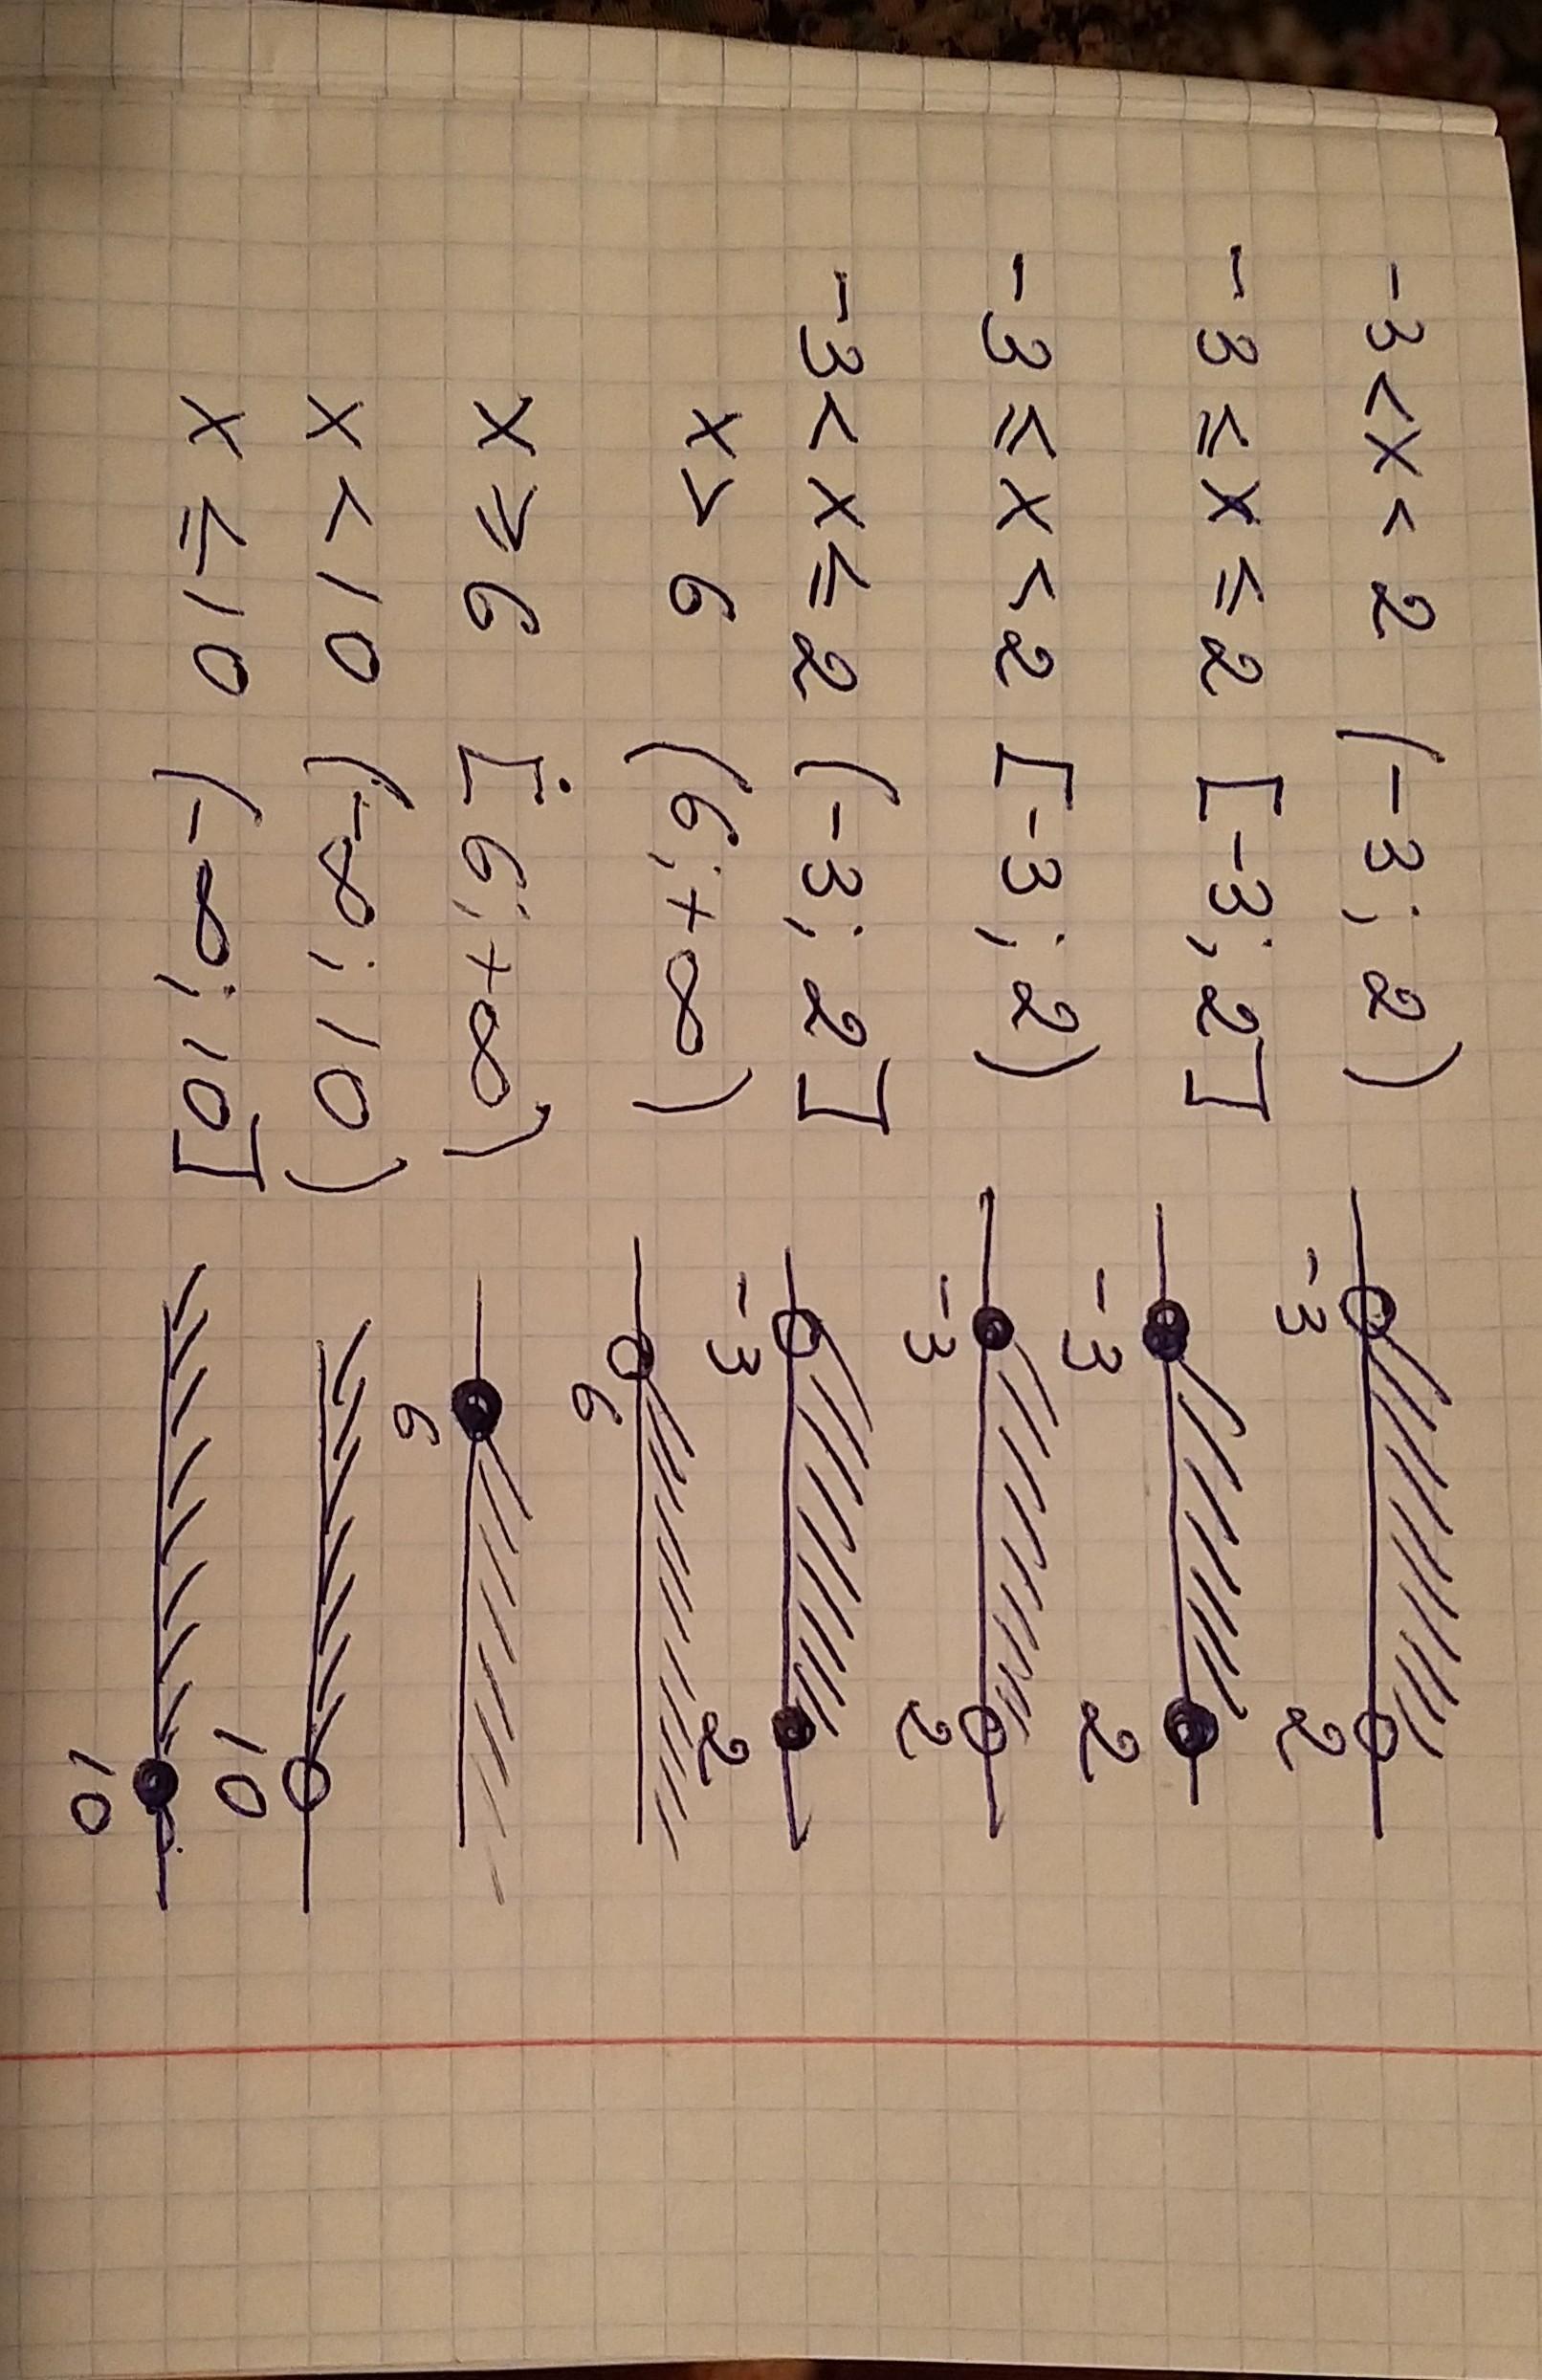 -3 < x < 2 (-3; 2) -3 2
-3 ⩽ x ⩽ 2 [-3; 2] -3 2
-3 ⩽ x < 2 [-3; 2) -3 2
-3 < x ⩽ 2 (-3; 2] -3 2
x > 6 (6; +∞) 6
x ⩾ 6 [6; +∞) 6
x < 10 (-∞; 10) 10
x ⩽ 10 (-∞; 10] 10